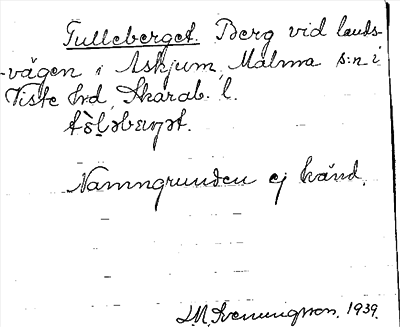 Tulleberget. Berg vid lands-
-vägen i Askjum, Malma s:n i
Viste hrd, Skarab. l.
Namngrunden ej känd.
J.M. Svenningsson, 1939.